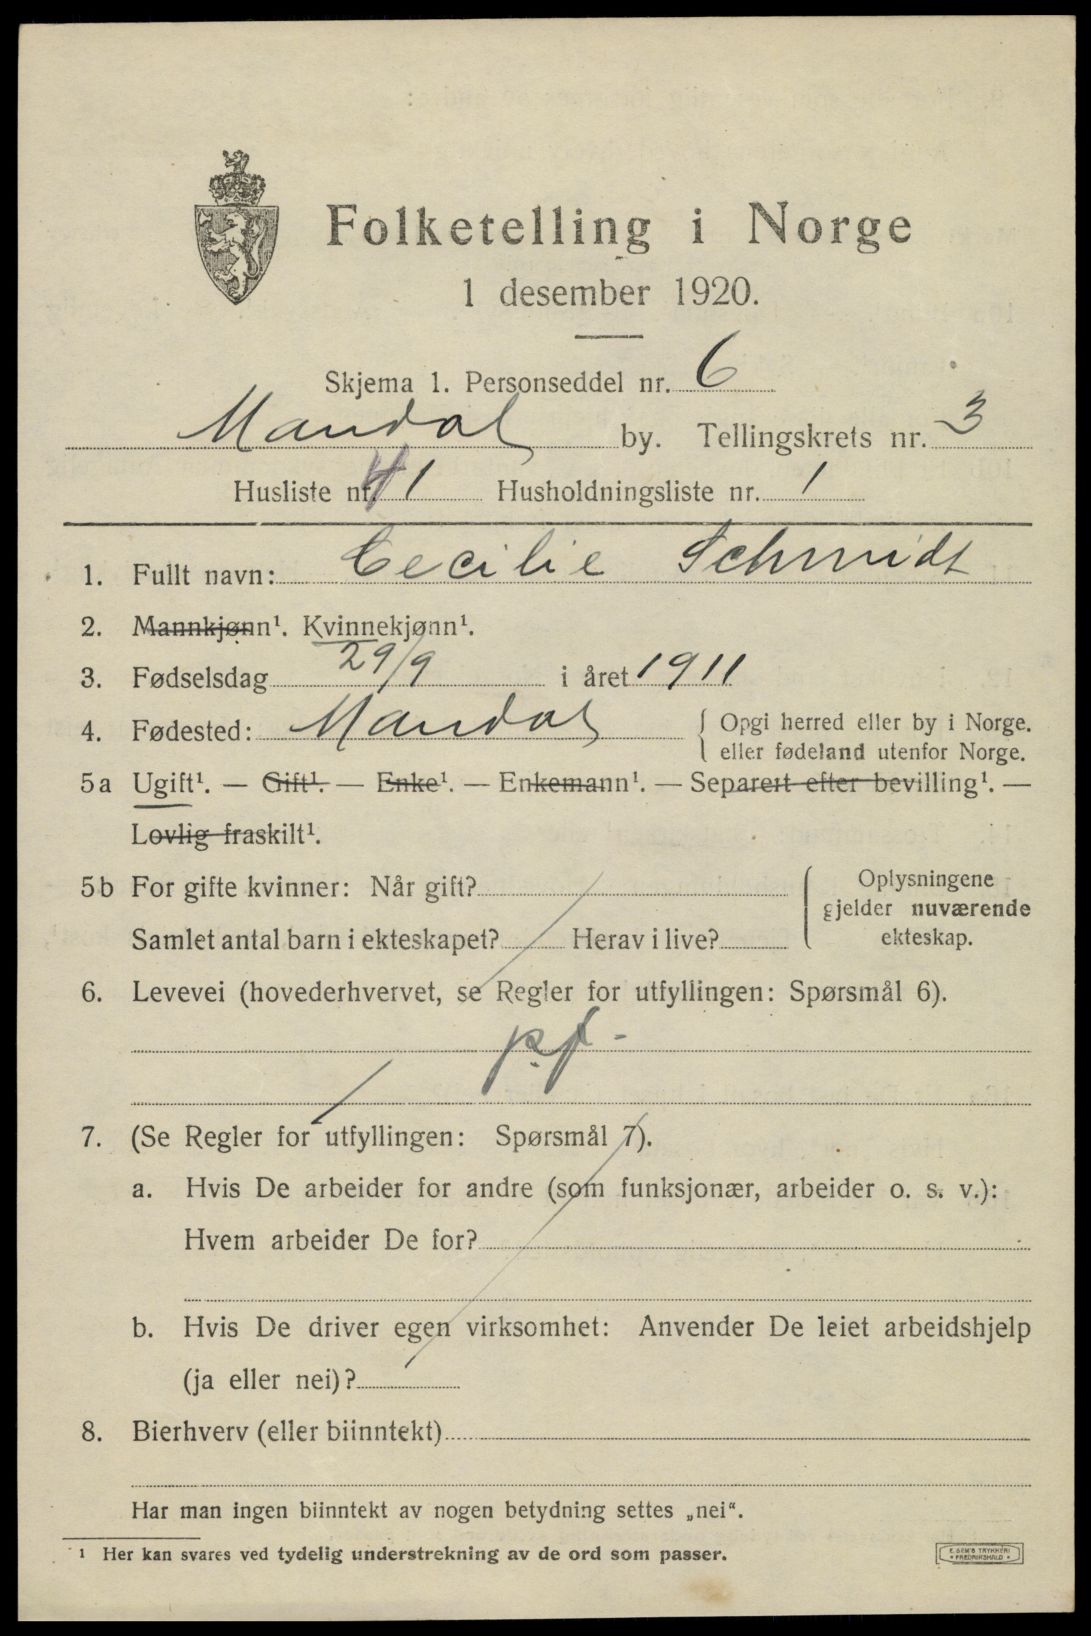 Folketelling i Norge
1 desember 1920.
Skjema 1. Personseddel nr. 6
Mandal by. Tellingskrets nr. 3
Husliste nr. 41 Husholdningsliste nr. 1
1. Fullt navn: Cecilie Schmidt
2. Mannkjønn¹. Kvinnekjønn¹.
3. Fødselsdag 29/9 i året 1911
4. Fødested: Mandal { Opgi herred eller by i Norge.
eller fødeland utenfor Norge.
5a Ugift¹. — Gift¹. — Enke¹. — Enkemann¹. — Separert efter bevilling¹. —
Lovlig fraskilt¹.
5b For gifte kvinner: Når gift? { Oplysningene
gjelder nuværende
Samlet antal barn i ekteskapet? Herav i live? ekteskap.
6. Levevei (hovederhvervet, se Regler for utfyllingen: Spørsmål 6).
p.f -
7. (Se Regler for utfyllingen: Spørsmål 7).
a. Hvis De arbeider for andre (som funksjonær, arbeider o. s. v.):
Hvem arbeider De for?
b. Hvis De driver egen virksomhet: Anvender De leiet arbeidshjelp
(ja eller nei)?
8. Bierhverv (eller biinntekt)
Har man ingen biinntekt av nogen betydning settes „nei“.
¹ Her kan svares ved tydelig understrekning av de ord som passer.
E. SEM'S TRYKKERI
• FREDRIKSHALD •